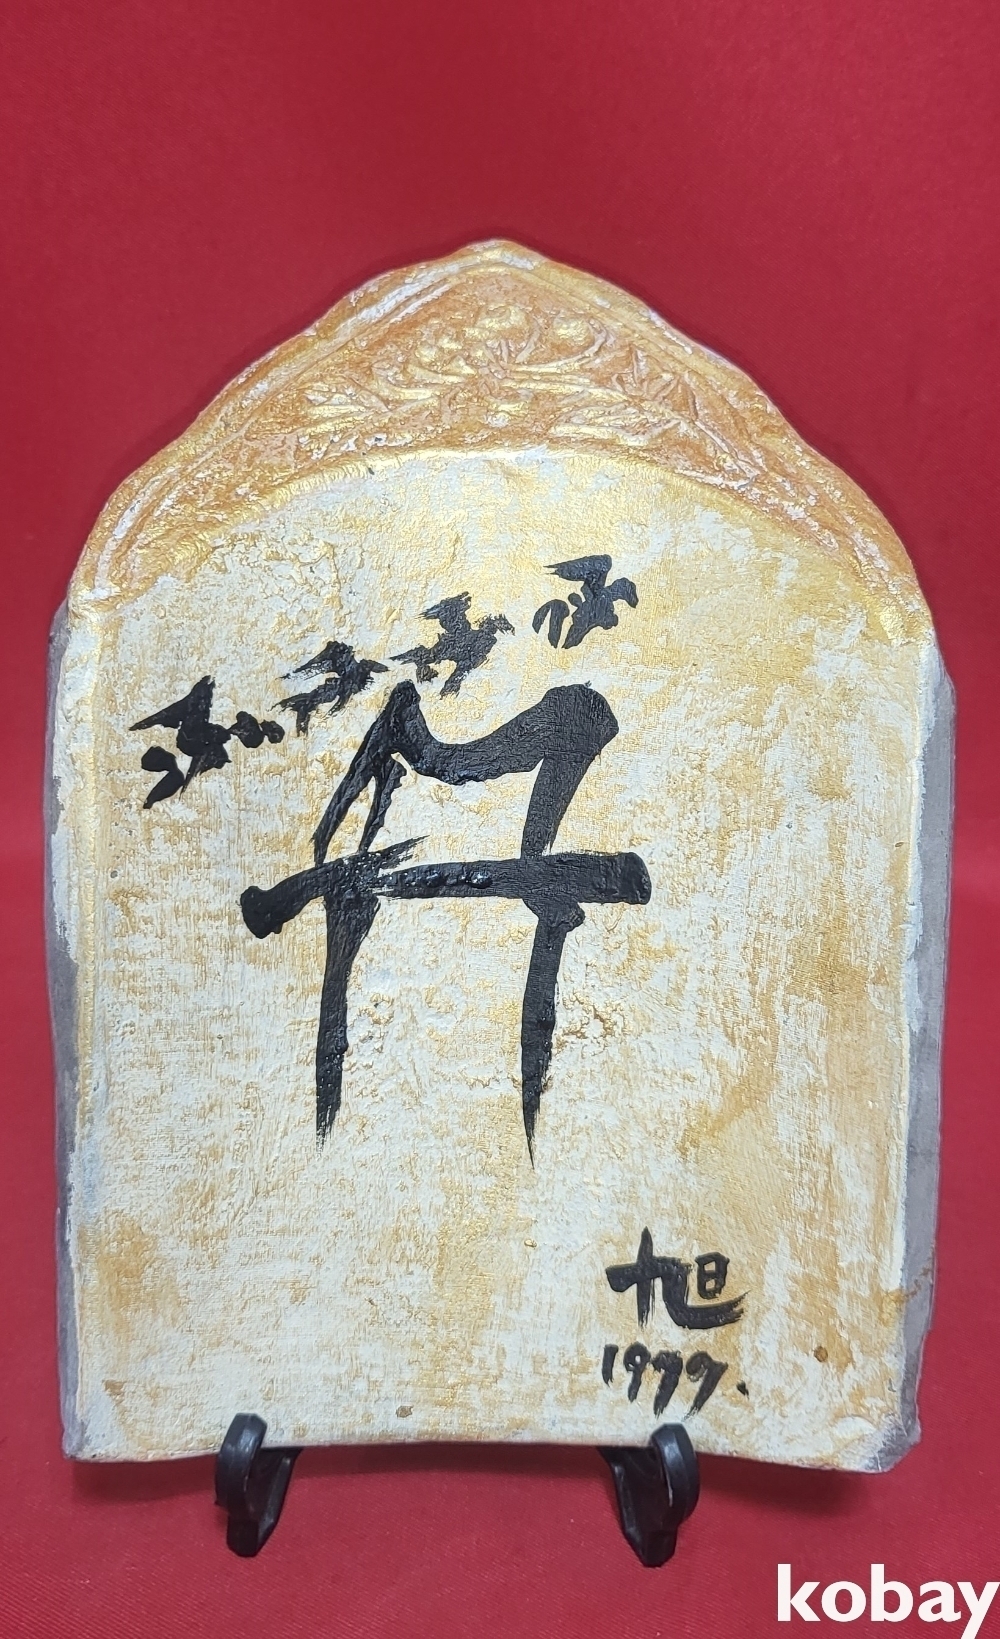 旭
1999.
kobay